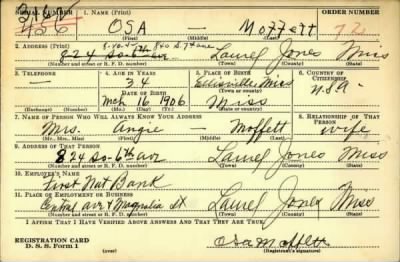 SERIAL NUMBER 1. NAME (Print) ORDER NUMBER
OSA — Moffett
2. ADDRESS (Print)
824 So-6th ave Laurel Jones Miss
(Number and street or R. F. D. number) (Town) (County) (State)
3. TELEPHONE 4. AGE IN YEARS 5. PLACE OF BIRTH 6. COUNTRY OF CITIZENSHIP
— 34 Ellisville, Miss
DATE OF BIRTH USA
Mch 16 1906 Miss
(Exchange) (Number) (Mo.) (Day) (Yr.) (State or country)
7. NAME OF PERSON WHO WILL ALWAYS KNOW YOUR ADDRESS 8. RELATIONSHIP OF THAT PERSON
Mrs. Angie — Moffett wife
(Mr., Mrs., Miss) (First) (Middle) (Last)
9. ADDRESS OF THAT PERSON
824 So-6th ave Laurel Jones Miss
(Number and street or R. F. D. number) (Town) (County) (State)
10. EMPLOYER'S NAME
First Nat Bank
11. PLACE OF EMPLOYMENT OR BUSINESS
Central ave & Magnolia St Laurel Jones Miss
(Number and street or R. F. D. number) (Town) (County) (State)
I AFFIRM THAT I HAVE VERIFIED ABOVE ANSWERS AND THAT THEY ARE TRUE.
REGISTRATION CARD
D. S. S. Form 1 (over) Osa Moffett
(Registrant's signature)